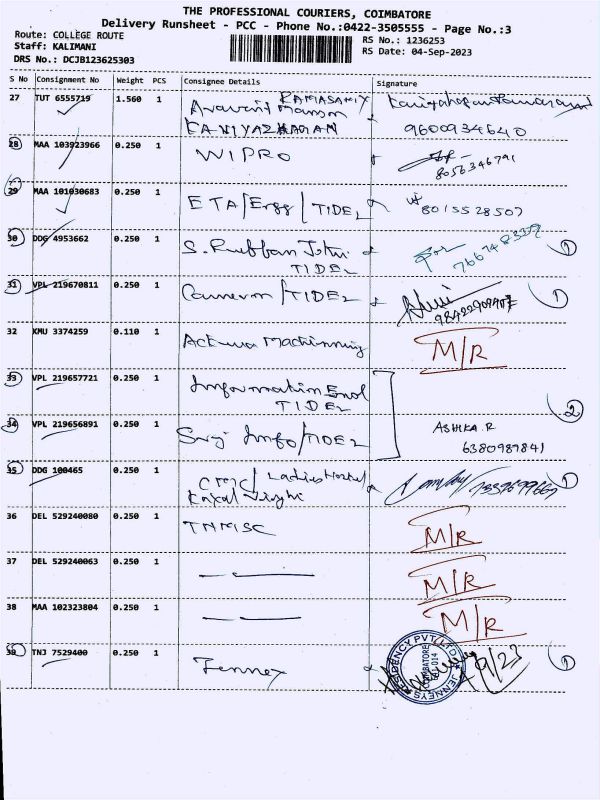 THE PROFESSIONAL COURIERS, COIMBATORE
Delivery Runsheet - PCC - Phone No.:0422-3505555 - Page No.:3
Route: COLLEGE ROUTE
Staff: KALIMANI
DRS No.: DCJB123625303
RS No.: 1236253
RS Date: 04-Sep-2023
S No Consignment No Weight PCS Consignee Details Signature
27 TUT 6555719 1.560 1
RAMASAMY
KANIYAZHAGAN
9600934640
28 MAA 103923966 0.250 1 WIPRO
8056346791
29 MAA 101030683 0.250 1 ETA/Engg/TIDEL
8015528507
30 DDG 4953662 0.250 1 S. Ruban John
TIDEL
1
31 VPL 219670811 0.250 1 Cameron/TIDEL
1
32 KMU 3374259 0.110 1 Machinning M/R
33 VPL 219657721 0.250 1 Information
TIDEL
2
34 VPL 219656891 0.250 1 Info/TIDEL
ASHIKA.R
6380989841
35 DDG 100465 0.250 1 CMC/Ladies Hostel
1
36 DEL 529240080 0.250 1 TNMSC M/R
37 DEL 529240063 0.250 1 M/R
38 MAA 102323804 0.250 1 M/R
39 TNJ 7529400 0.250 1 Jenney
JENNEYS RESIDENCY PVT LTD
COIMBATORE
641 014
9/23
1